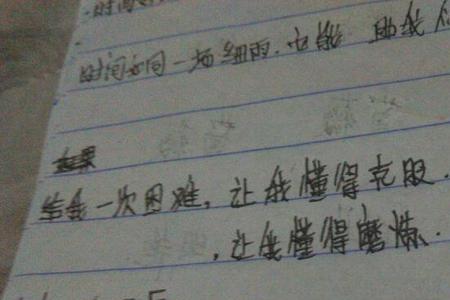 时间
时间如同一场细雨.也能 助我
给我一次困难，让我懂得克服.
，让我懂得磨炼.